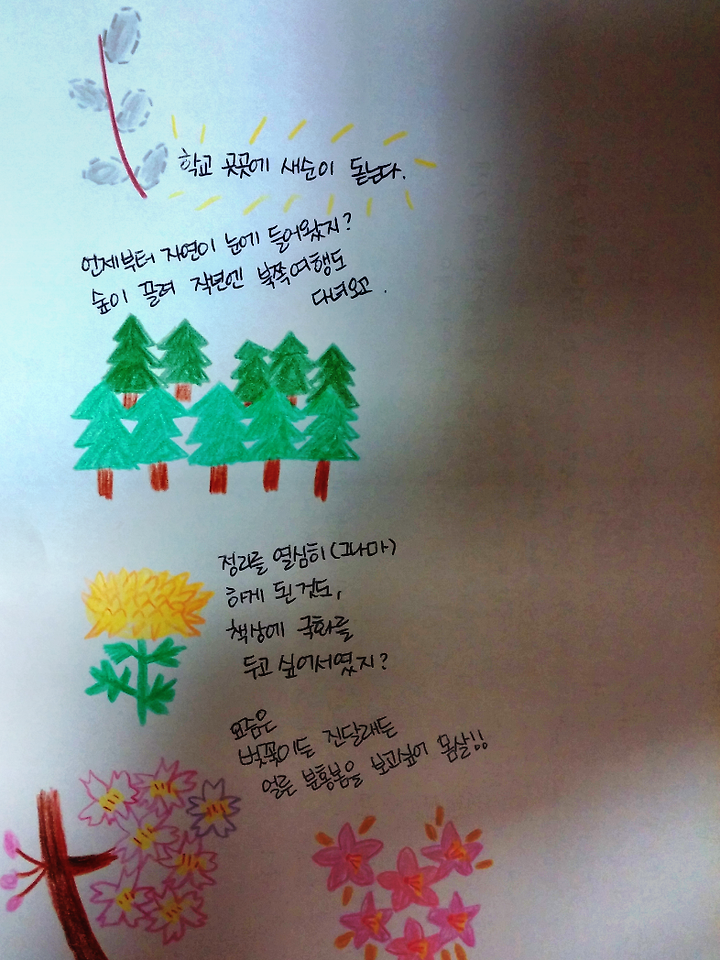 학교 곳곳에 새순이 돋는다.
언제부터 자연이 눈에 들어왔지?
숲이 끌려 작년엔 북쪽여행도
다녀오고.
정리를 열심히(그나마)
하게 된것도,
책상에 국화를
두고 싶어서였지?
요즘은
벚꽃이든 진달래든
얼른 분홍봄을 보고싶어 몸살!!